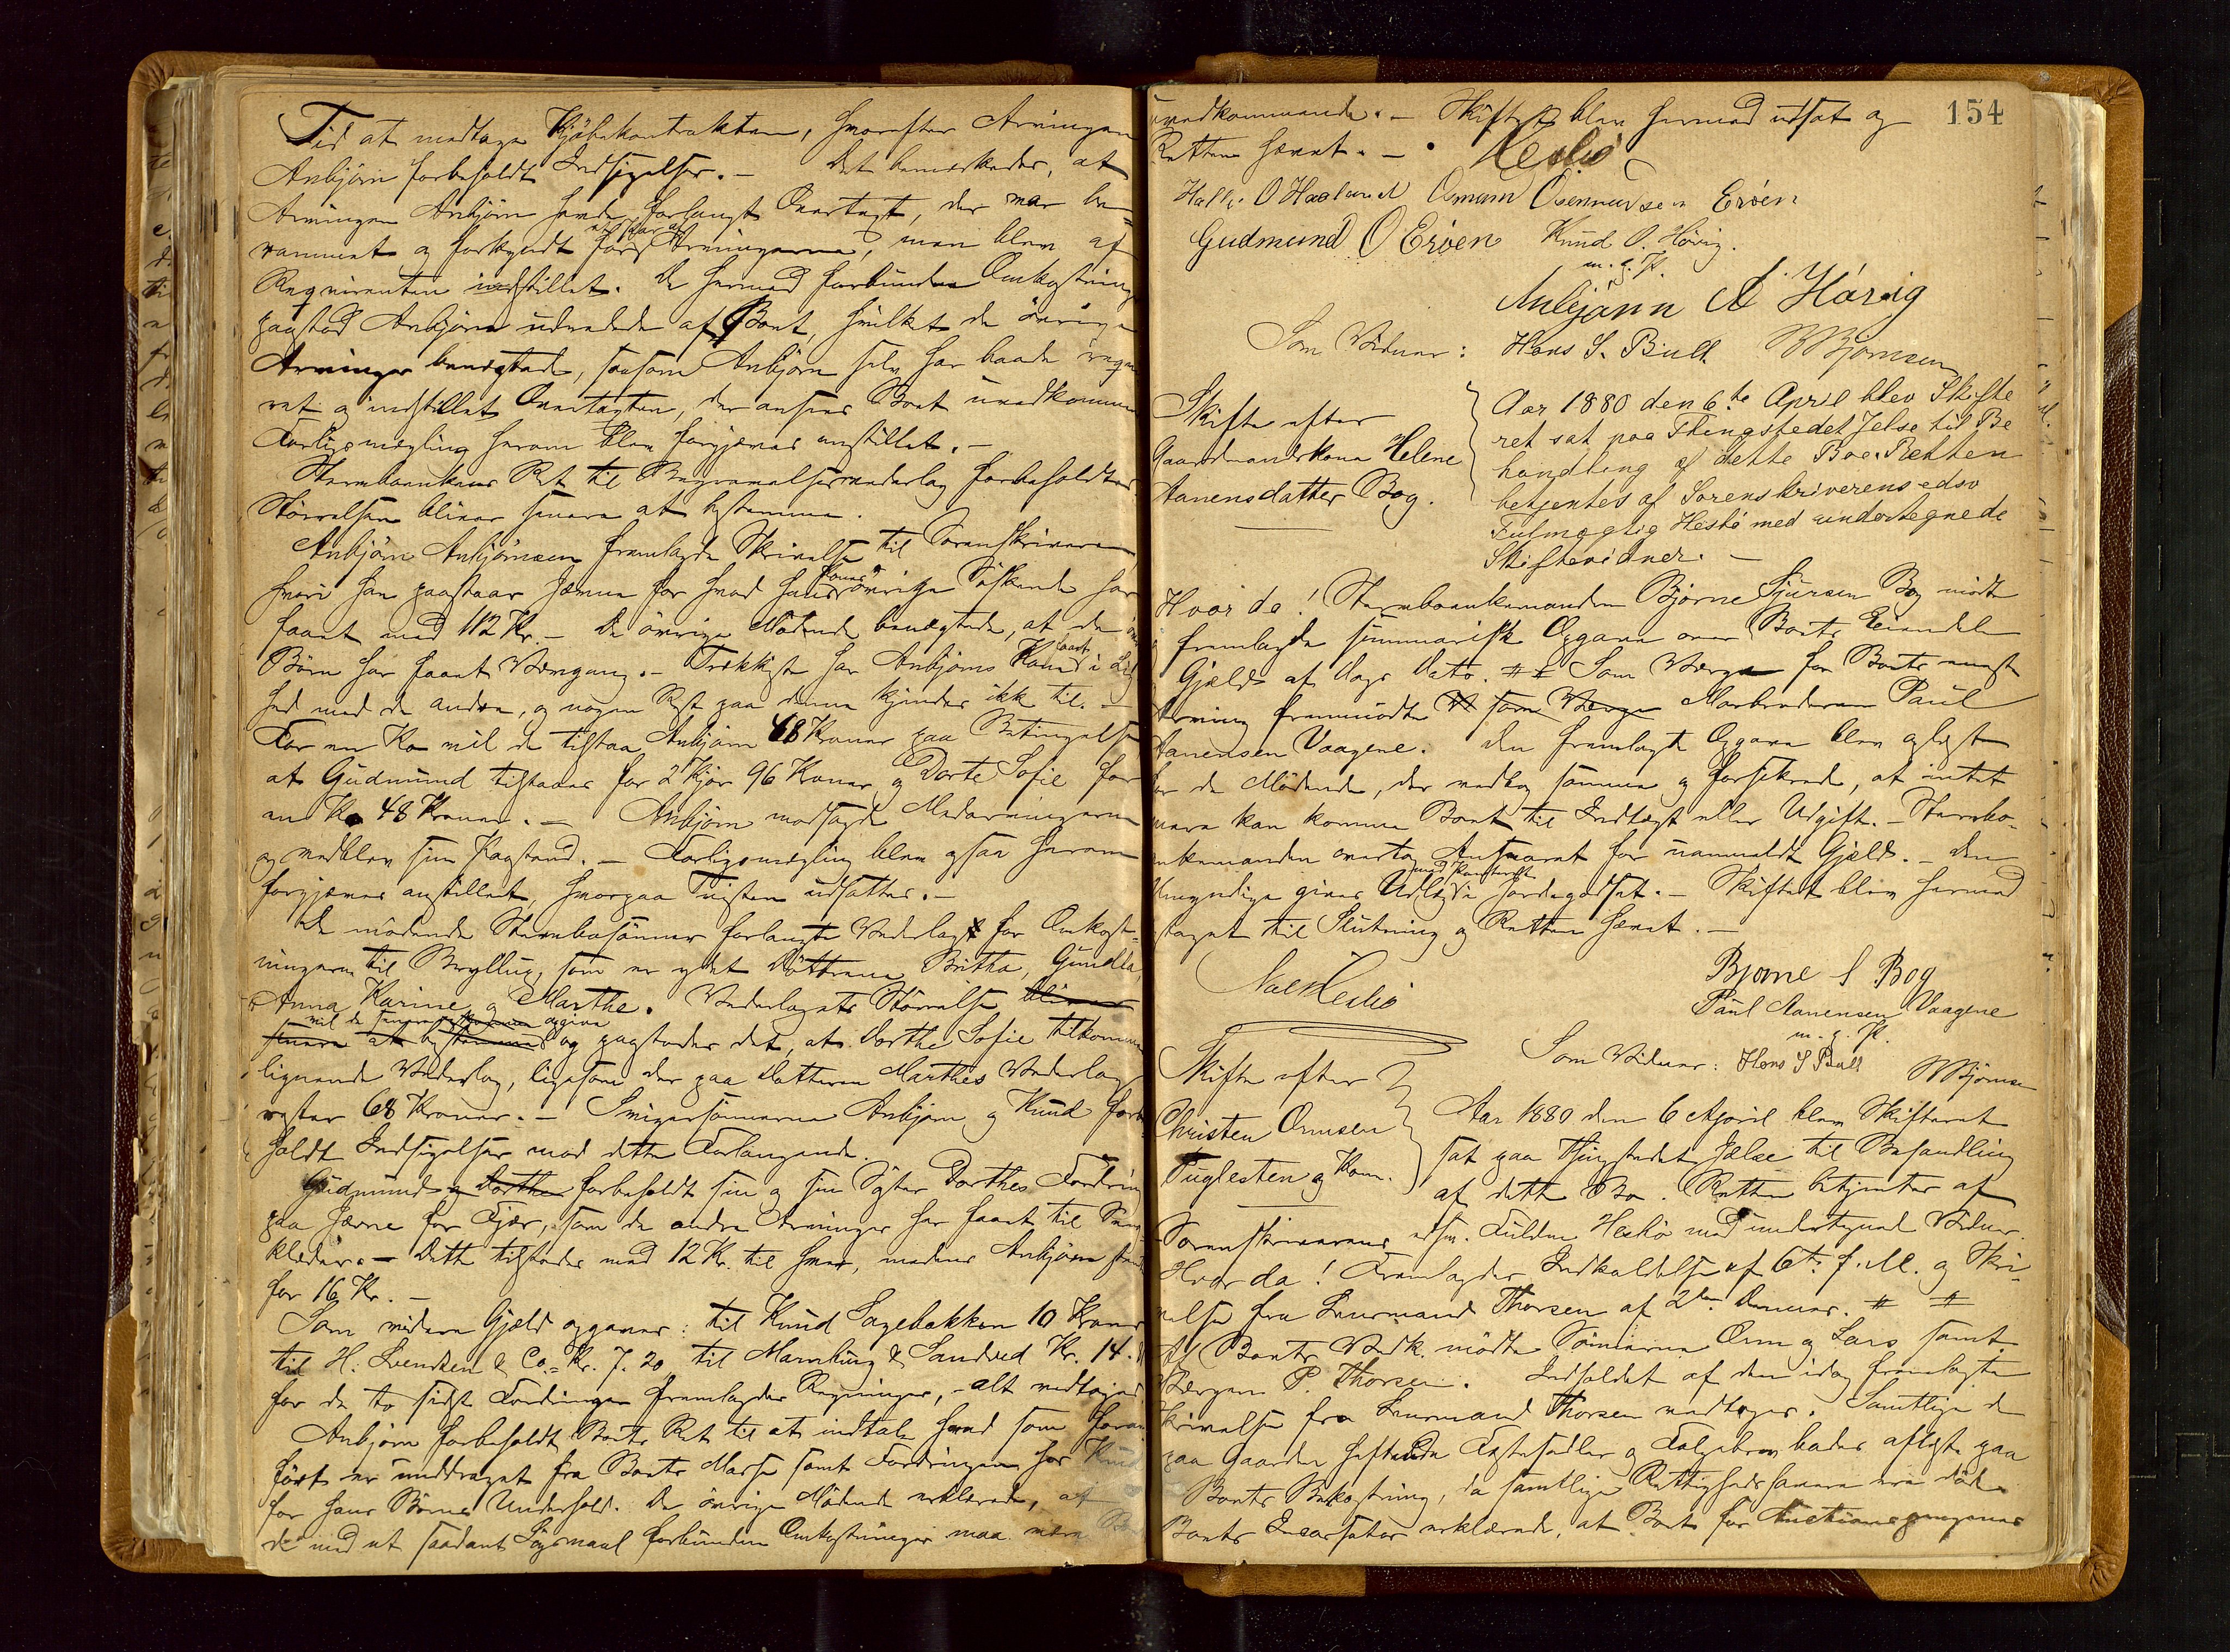 Tid at modtage Kjøbekontrakten, hvorefter Arvingen
Anbjørn forbeholdt Indsigelser. — Det bemærkedes, at
Arvingen Anbjørn havde forlangt Overtagt, der var be-
rammet og forkyndt for Arvingerne, men blev af
Requirenten indstillet. De hermed forbundne Omkostninger
paastod Anbjørn udredede af Boet, hvilket de øvrige
Arvinger benægtede, saasom Anbjørn selv har baade
ret og indstillet Overtagten, der ansees Boet uvedkommen
Forligsmægling herom blev forgjæves anstillet. —
Stervboenkens Ret til Begravelsesvederlag forbeholdtes
Størrelsen bliver senere at bestemme.
Anbjørn Anbjørnsen fremlagde Skrivelse til Sorenskriveren,
hvori han paastaar Jævne for hvad hans Kones øvrige Søskende har
faaet med 112 Kr. — De øvrige Mødende benægtede, at de
Børn har faaet . — har Anbjørns Kone faaet i Lig
hed med de andre, og nogen Rest paa denne kjendes ikke til. —
For en Ko vil de tilstaa Anbjørn 48 Kroner paa Betingelse
at Gudmund tilstaaes for 2 Kjør 96 Kroner og Dorte Sofie for
en Ko 48 Kroner. — Anbjørn modsagde Medarvingerne
og vedblev sin Paastand. — Forligsmægling blev ogsaa herom
forgjæves anstillet, hvorpaa Tvisten udsattes. —
De mødende Stervbosønner forlangte Vederlag for Omkost-
ningerne til Bryllup, som er ydet Døttrene Britha, Gundla,
Anna Karine og Marthe. Vederlagets Størrelse bliver
vil de senere opgive
senere at bestemme og paastodes det, at Dorthe Sofie tilkommer
lignende Vederlag, ligesom der paa Datteren Marthes Vederlag
rester 68 Kroner. — Svigersønnerne Anbjørn og Knud forbe
holdt Indsigelser mod dette Forlangende.
Gudmund og Dorthe forbeholdt sin og sin Søster Dorthes Fordring
paa Jævne for Fjær, som de andre Arvinger har faaet til Seng
klæder. — Dette tilstodes med 12 Kr. til hver, medens Anbjørn
for 16 Kr. —
Som videre Gjæld opgaves: til Knud Sagebakken 10 Kroner
til H. Svendsen & Co. Kr. 7.20 til & Sandved Kr. 14.
for de to sidste Fordringer fremlagdes Regninger, — alt vedtoges
Anbjørn forbeholdt Boets Ret til at indtale hvad som
ført er unddraget fra Boets Masse samt Fordringen hos Knud
for hans Børns Underhold. De øvrige Mødende erklærede, at
de med et saadant Søgsmaal forbundne Omkostninger maa være Boet
154
uvedkommende. — Skiftet blev hermed udsat og
Retten hævet. — Heskø
Halle. O Haaland Osmun Osmundsen Erøen
Gudmund O Erøen Knud O. Høvig.
m. p. P.
Anbjørn A Hårvig
Som Vidner: Hans S. Bull Bjørnsen
Skifte efter
Gaardmandskone Helene
Aanensdatter Bog.
Aar 1880 den 6te April blev Skifte
ret sat paa Thingstedet Jelse til Be
handling af dette Boe. Retten
betjentes af Sorenskriverens edsv
Fulmægtig Heskø med undertegnede
Skiftevidner. —
Hvor da! Stervboenkemanden Bjørne Sjursen Bog mødte
fremlagde summarisk Opgave over Boets Eiendele
Gjæld af Dags Dato. ## Som Værge for Boets eneste
Arving fremmødte som Værge Morbroderen Paul
Aanensen Vaagene. Den fremlagte Opgave blev oplæst
for de Mødende, der vedtog samme og forsikrede, at intet
mere kan komme Boet til Indtægt eller Udgift. — Stervbo-
enkemanden overtog Ansvaret for uanmeldt Gjæld. — Den
Umyndige gives Udlæg med Panteret i Jordegodset. — Skiftet blev hermed
optaget til Slutning og Retten hævet. —
Heskø
Bjørne S Bog
Paul Aanensen Vaagene
m. p. P.
Som Vidner: Hans S Bull Bjørnsen
Skifte efter
Christen Ormsen
Fuglesten og Kone.
Aar 1880 den 6 April blev Skifteret
sat paa Thingstedet Jelse til Behandling
af dette Bo. Retten betjentes af
Sorenskriverens edsv. Fuldm Heskø med undertegnede Vidner.
Hvor da! Fremlagdes Indkaldelse af 6te f. M. og Skri-
velse fra Lensmand Thorsen af 2den Dennes. # #
Af Boets Vedk. mødte Sønnerne Orm og Lars samt
Værgen P. Thorsen. Indholdet af den idag fremlagte
Skrivelse fra Lensmand Thorsen vedtoges. Samtlige de
paa Gaarden heftende Fæstesedler og Følgebreve bedes aflyste paa
Boets Bekostning, da samtlige Rettighedshavere ere døde
Boets Incassator erklærede, at Boet for Auctionspengenes